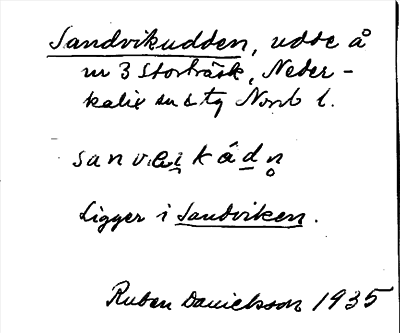 Sandvikudden, udde å
nr 3 Storträsk, Neder-
kalix sn & tg Norrb l.
Ligger i Sandviken.
Ruben Danielsson 1935